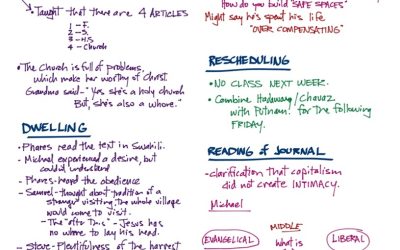 Taught that there are 4 ARTICLES
1 - F.
2 - S.
3 - H.S.
4 - Church
• The Church is full of problems,
which make her worthy of Christ
Grandma said - "Yes she's a holy church
But, she's also a whore."
DWELLING
• Phares read the text in Swahili.
• Michael experienced a desire, but
could understand
• Phares - heard the obedience
• Samuel - thought about tradition of a
stranger visiting. The whole village
would come to visit.
- The "after this" - Jesus has
no where to lay his head.
• Steve - Plentifulness of the harvest
How do you build 'SAFE SPACES'
Might say he's spent his life
"OVER COMPENSATING"
RESCHEDULING
• NO CLASS NEXT WEEK.
• Combine Hadaway/Chavez
with Putnam for the following
FRIDAY.
READING of JOURNAL
- clarification that capitalism
did not create INTIMACY.
Michael
MIDDLE
EVANGELICAL
what is
LIBERAL